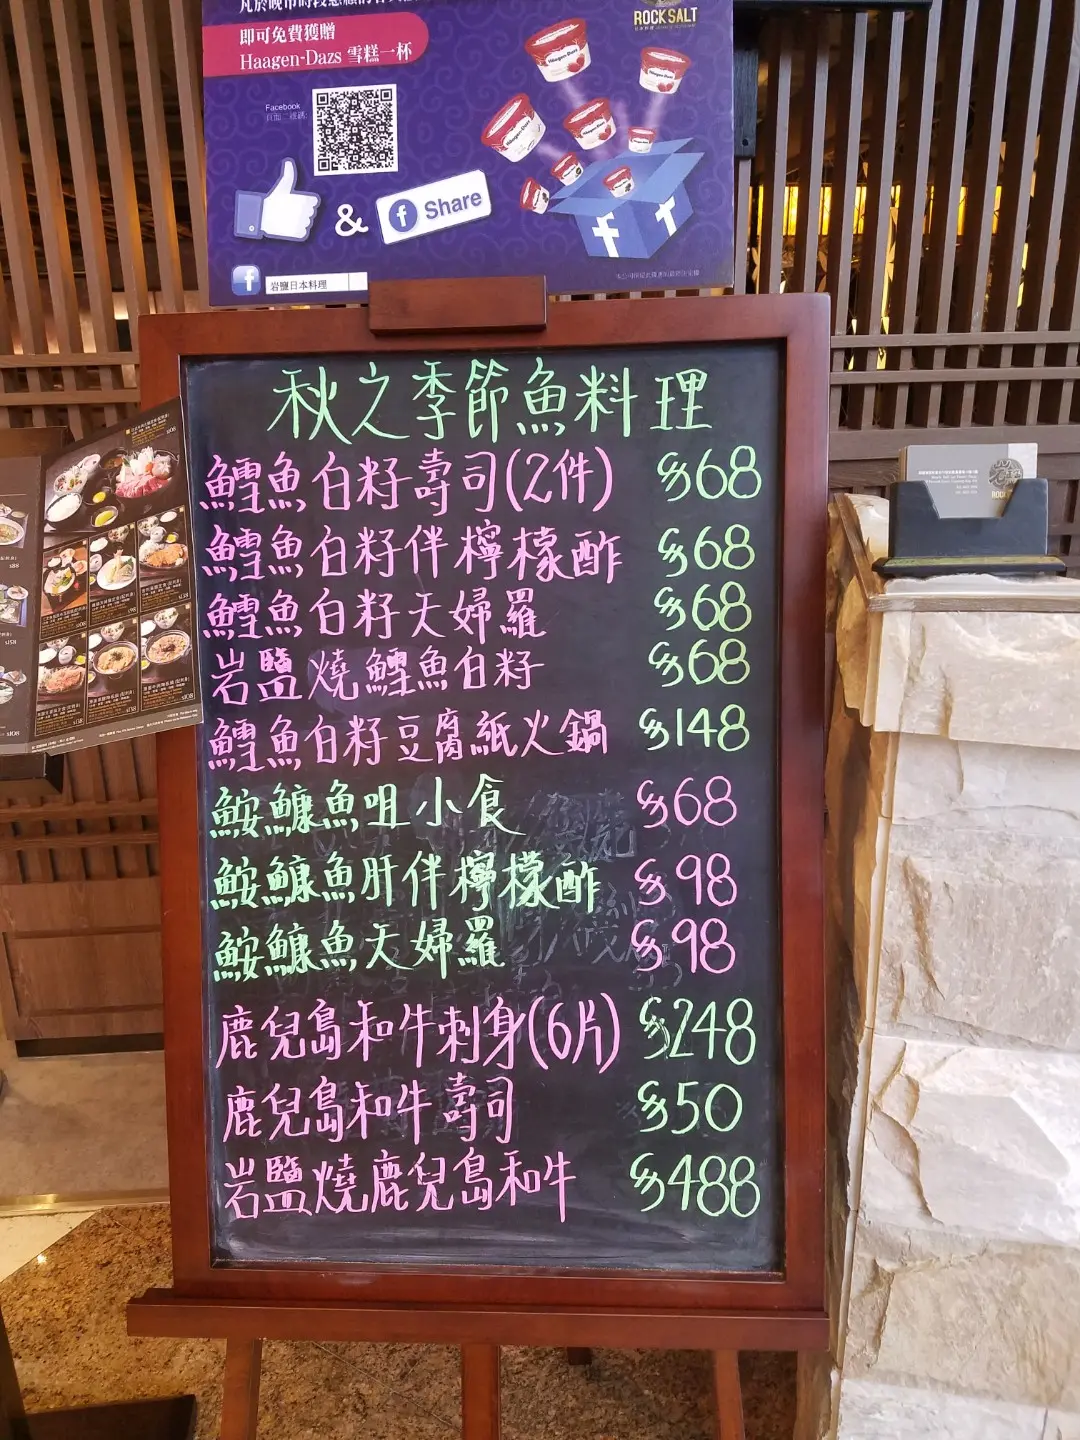 即可免費獲贈
Haagen-Dazs 雪糕一杯
ROCK SALT
Facebook
頁面二維碼:
&
f Share
岩鹽日本料理
秋之季節魚料理
鱈魚白籽壽司(2件) $68
鱈魚白籽伴檸檬酢 $68
鱈魚白籽天婦羅 $68
岩鹽燒鱈魚白籽 $68
鱈魚白籽豆腐紙火鍋 $148
鮟鱇魚咀小食 $68
鮟鱇魚肝伴檸檬酢 $98
鮟鱇魚天婦羅 $98
鹿兒島和牛刺身(6片) $248
鹿兒島和牛壽司 $50
岩鹽燒鹿兒島和牛 $488